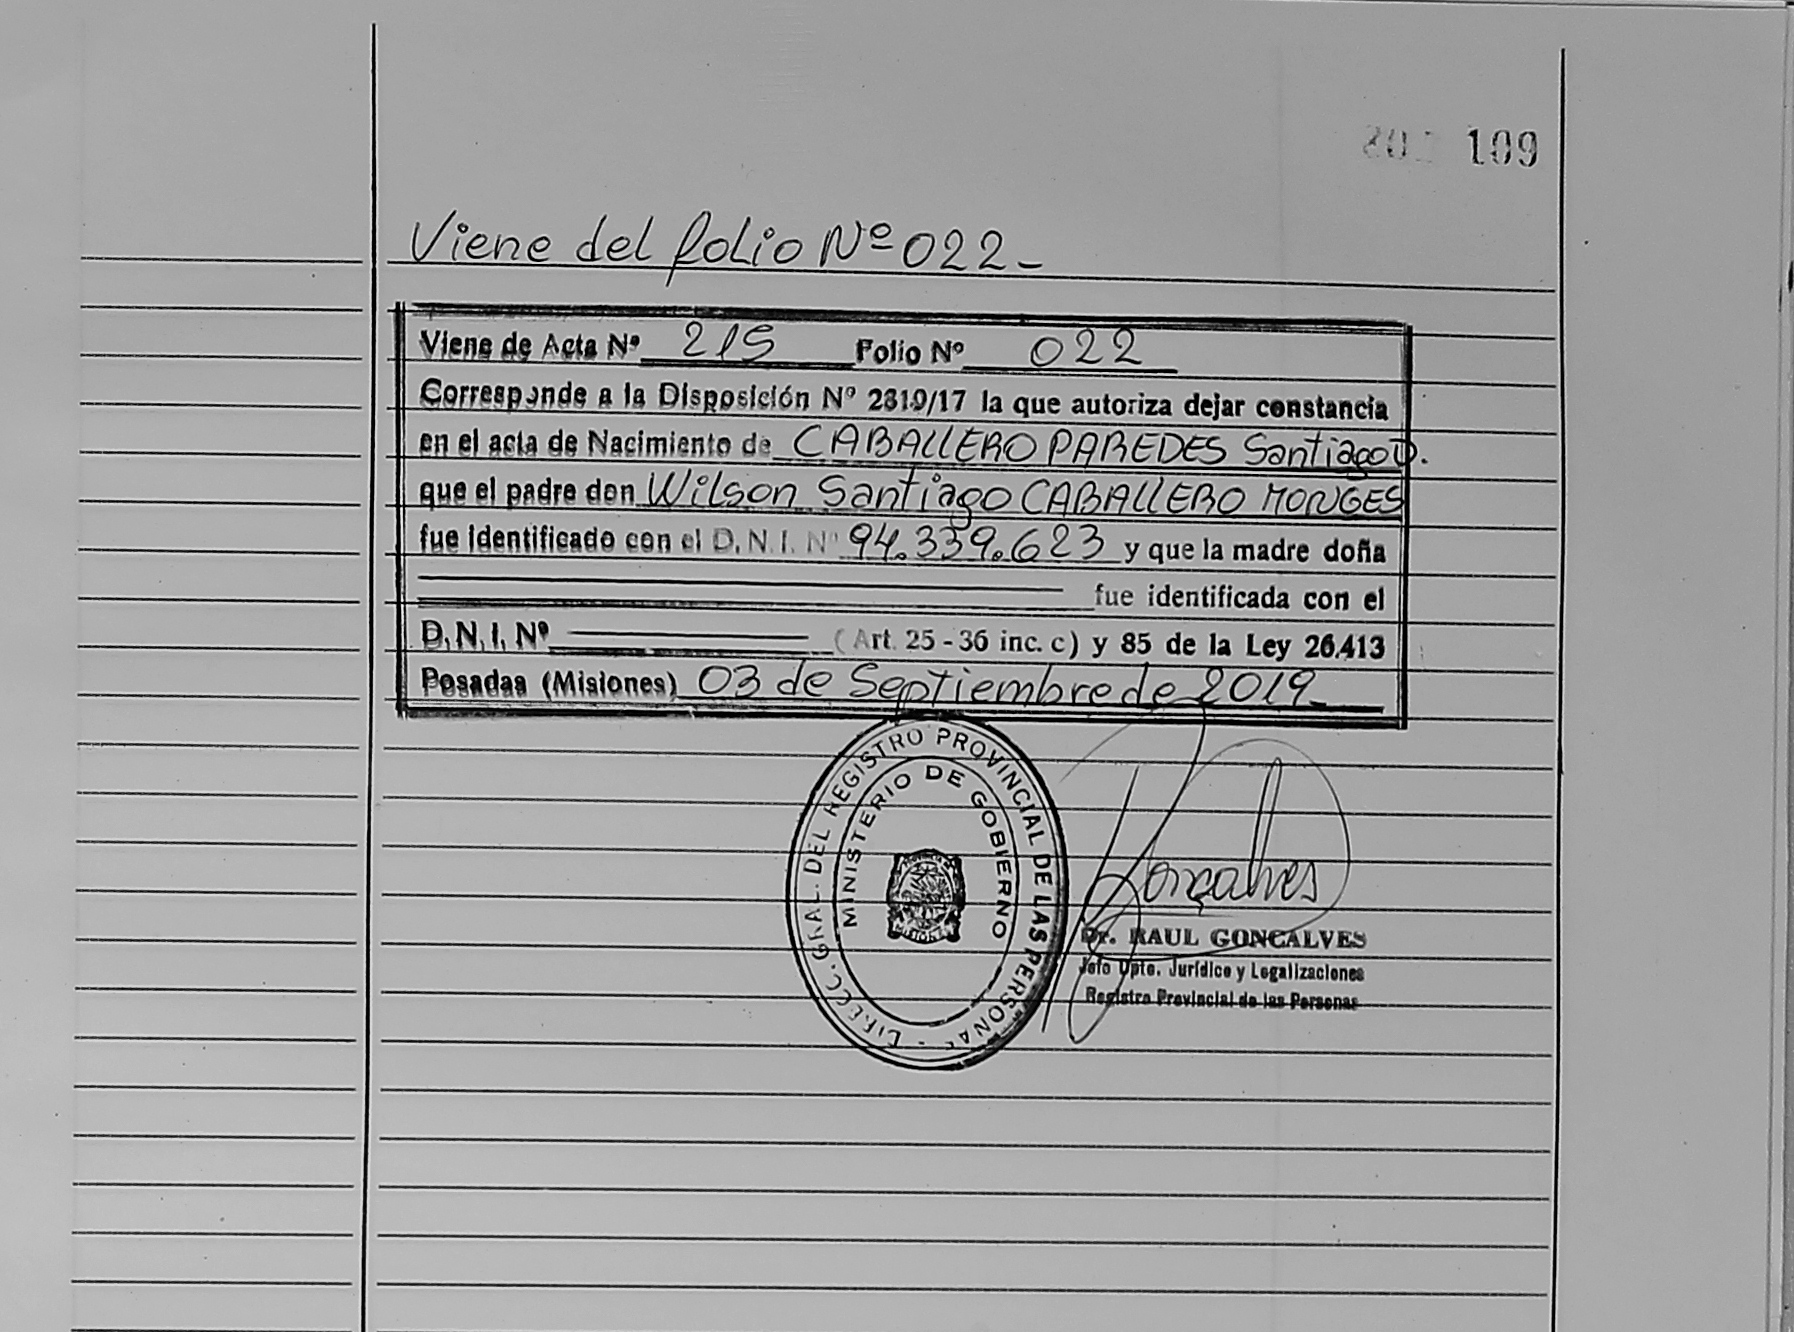 109
Viene del folio Nº 022-
Viene de Acta Nº 215 Folio Nº 022
Corresponde a la Disposición Nº 2319/17 la que autoriza dejar constancia
en el acta de Nacimiento de CABALLERO PAREDES Santiago D.
que el padre don Wilson Santiago CABALLERO MONGES
fue identificado con el D. N. I. Nº 94.339.623 y que la madre doña
fue identificada con el
D. N. I. Nº (Art. 25 - 36 inc. c) y 85 de la Ley 26.413
Posadas (Misiones) 03 de Septiembre de 2019
DIRECC. GRAL. DEL REGISTRO PROVINCIAL DE LAS PERSONAS -
MINISTERIO DE GOBIERNO
MISIONES
Gonçalves
Dr. RAUL GONCALVES
Jefe Dpto. Jurídico y Legalizaciones
Registro Provincial de las Personas